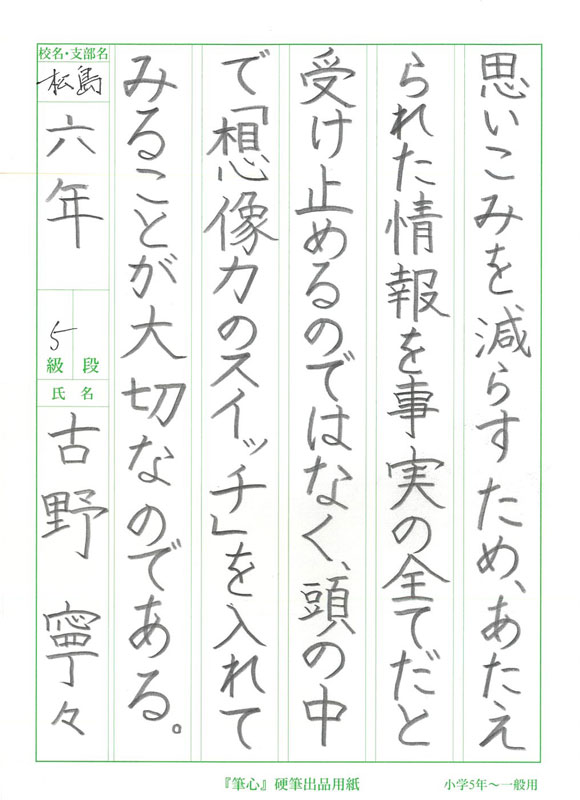 思いこみを減らすため、あたえ
られた情報を事実の全てだと
受け止めるのではなく、頭の中
で「想像力のスイッチ」を入れて
みることが大切なのである。
校名・支部名
松島
六年
5
級 段
氏名
古野 寧々
『筆心』硬筆出品用紙
小学5年～一般用